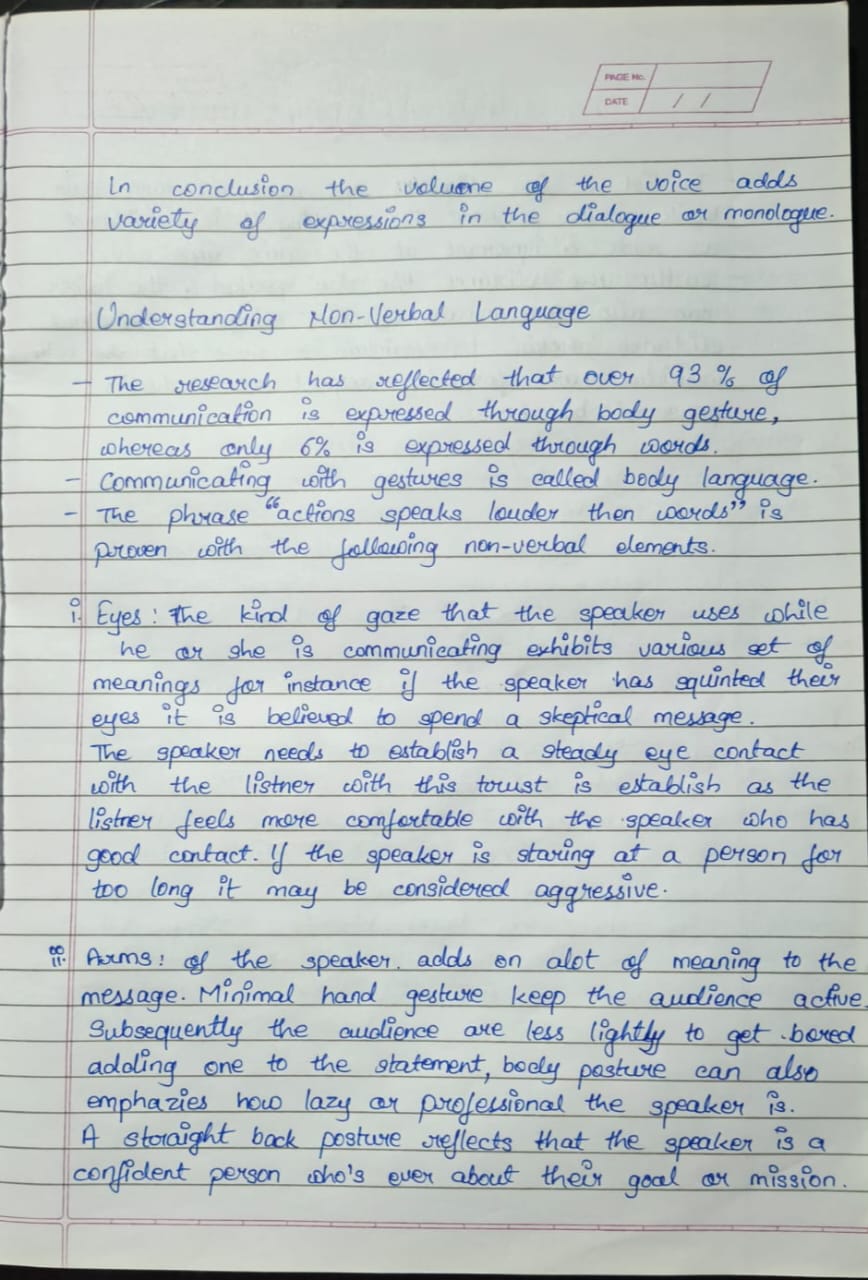 PAGE No.
DATE / /
In conclusion the volume of the voice adds
variety of expressions in the dialogue or monologue.
Understanding Non-Verbal Language
- The research has reflected that over 93 % of
communication is expressed through body gesture,
whereas only 6% is expressed through words.
- Communicating with gestures is called body language.
- The phrase "actions speaks louder then words" is
proven with the following non-verbal elements.
i. Eyes : The kind of gaze that the speaker uses while
he or she is communicating exhibits various set of
meanings for instance if the speaker has squinted their
eyes it is believed to spend a skeptical message.
The speaker needs to establish a steady eye contact
with the listner with this trust is establish as the
listner feels more comfortable with the speaker who has
good contact. If the speaker is staring at a person for
too long it may be considered aggressive.
ii. Arms : of the speaker. adds on alot of meaning to the
message. Minimal hand gesture keep the audience active
Subsequently the audience are less lightly to get bored
adding one to the statement, body posture can also
emphazies how lazy or professional the speaker is.
A straight back posture reflects that the speaker is a
confident person who's ever about their goal or mission.